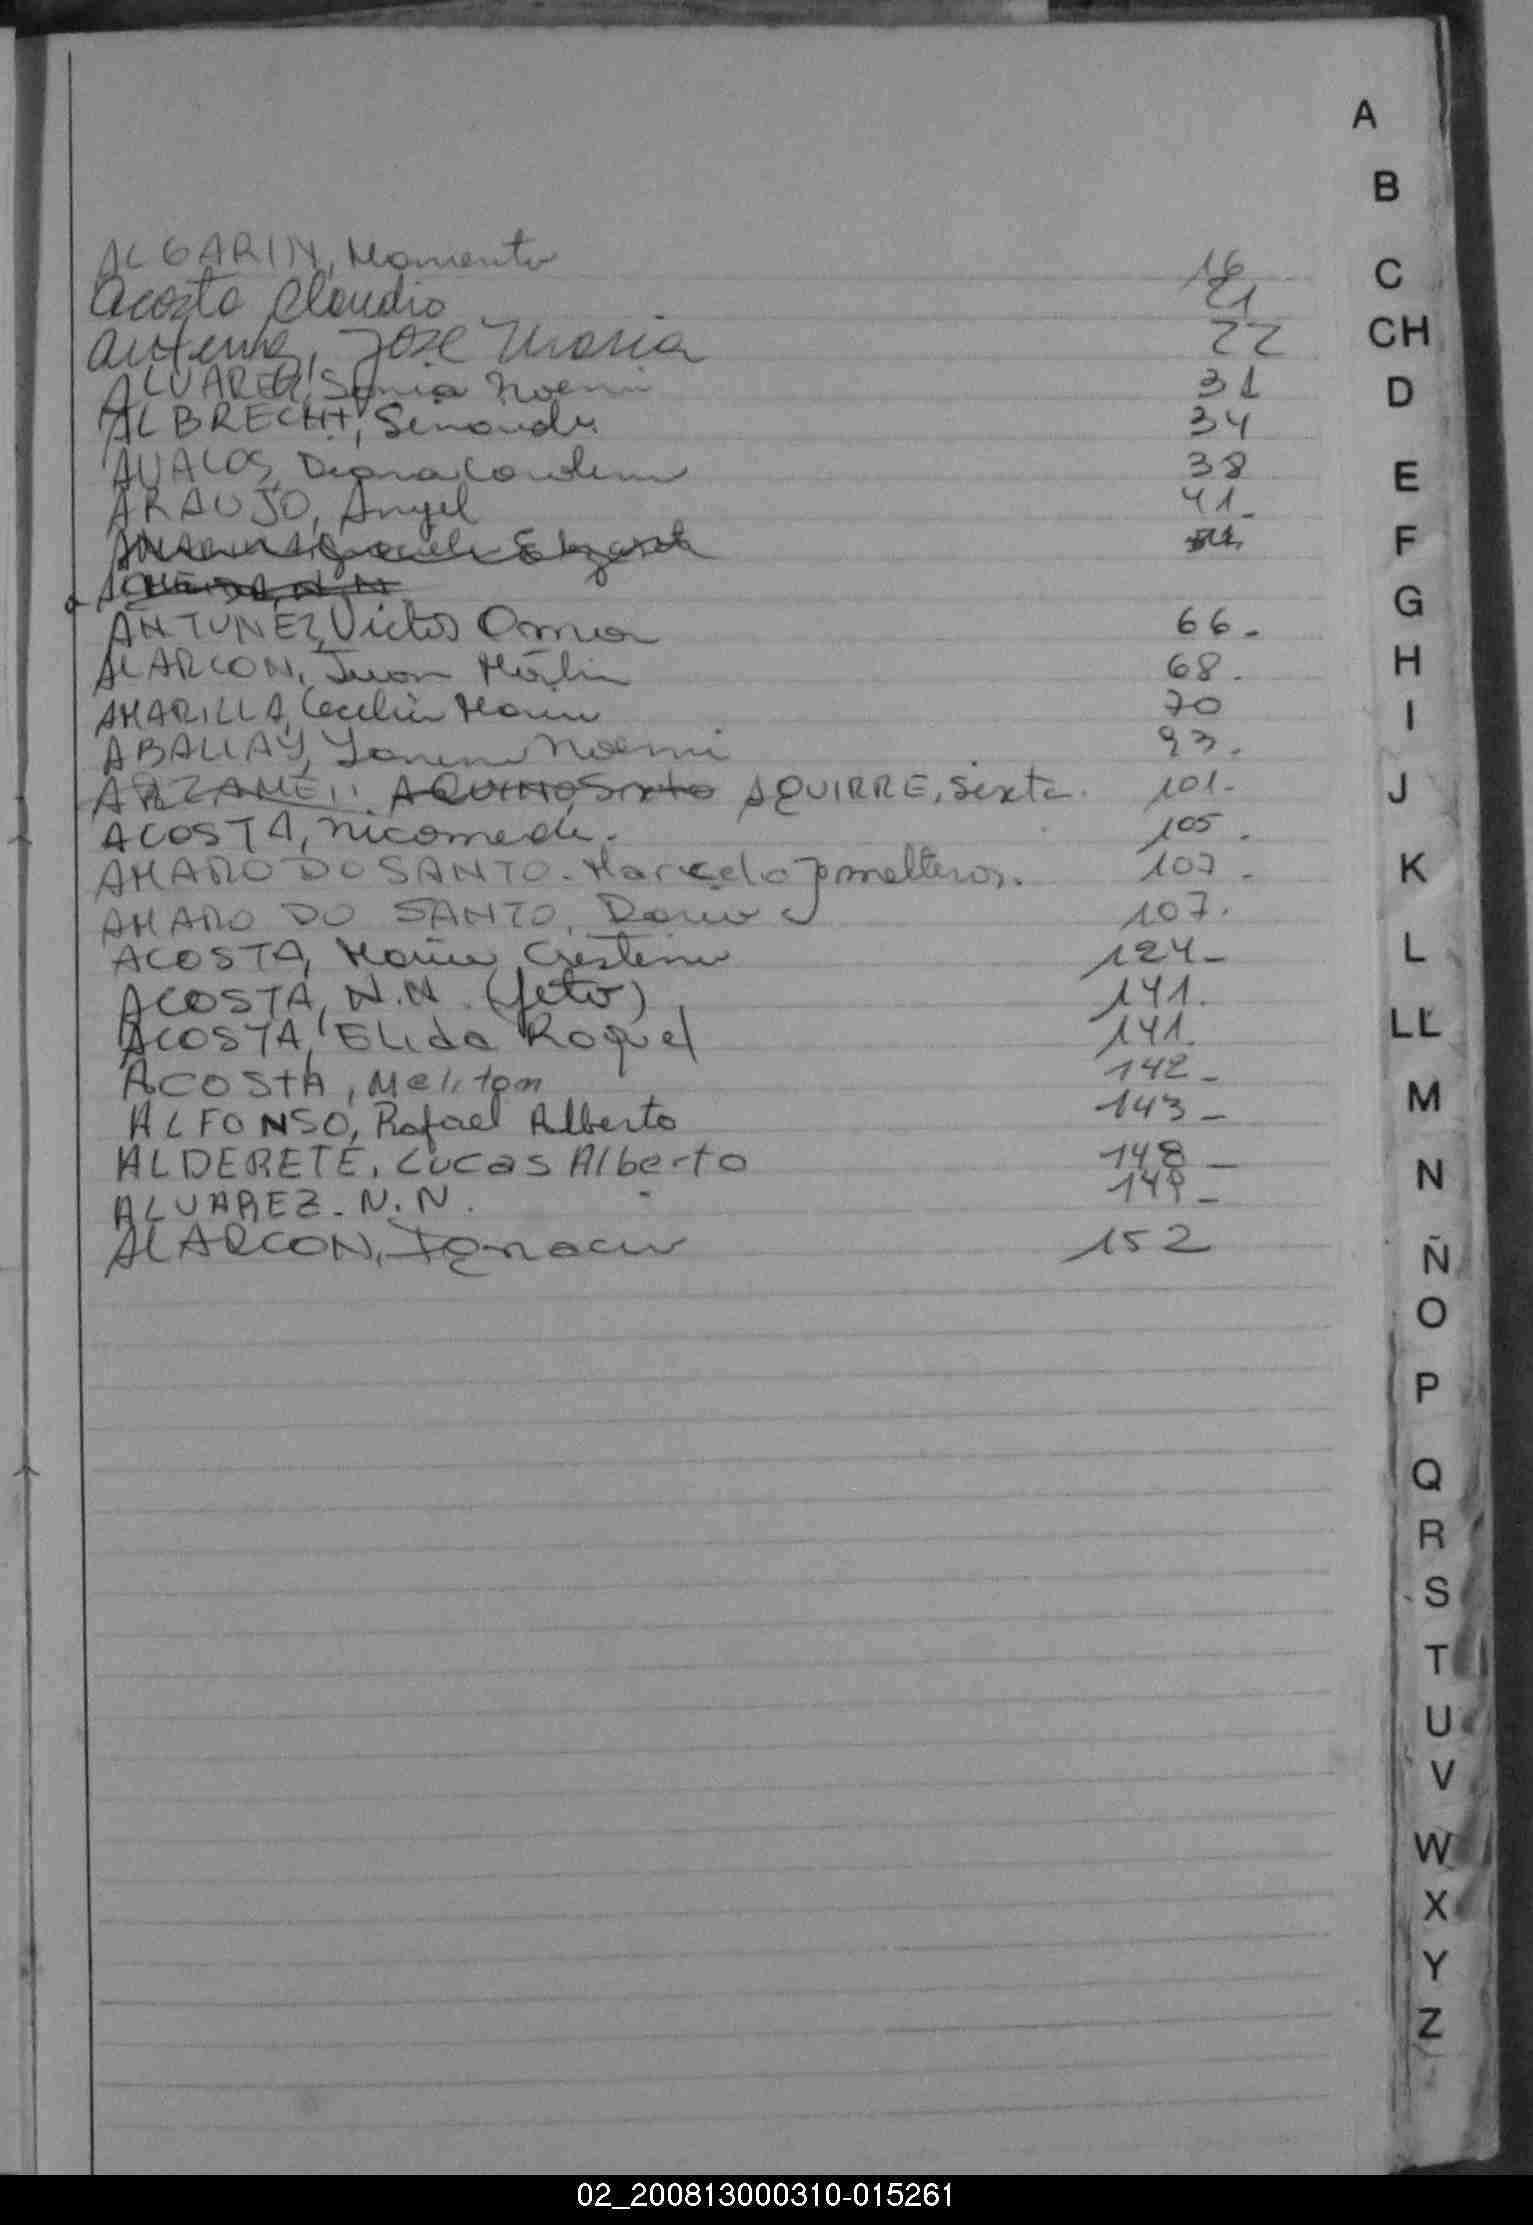 A
B
ALGARIN, 16
Acosta Claudio 21
C
José Maria 22
CH
ALVAREZ, Sonia Noemi 31
D
ALBRECHT, 34
AVALOS, Diana 38
E
ARAUJO, Angel 41-
F
G
ANTUNEZ, Victor Omar 66-
ALARCON, Juan Martin 68.
H
AMARILLA, Cecilia Maria 70
I
ABALLAY, Noemi 93.
AQUINO, Sixto AQUIRRE, Sixto. 101-
J
ACOSTA, Nicomede. 105.
AMARO DO SANTO. Marcelo 107.
K
AMARO DO SANTO, Dario 107.
ACOSTA, Maria Cristina 124-
L
ACOSTA, N.N. (feto) 141.
ACOSTA, Elida Raquel 141.
LL
ACOSTA, Meliton 142-
ALFONSO, Rafael Alberto 143-
M
ALDERETE, Lucas Alberto 148-
ALVAREZ- N.N. 149-
N
ALARCON, Ignacio 152
Ñ
O
P
Q
R
S
T
U
V
W
X
Y
Z
02_200813000310-015261